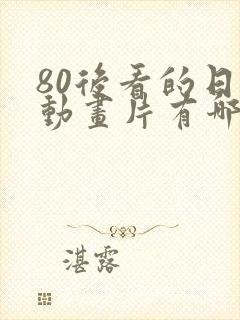 80後看的日
動畫片有哪
湛露